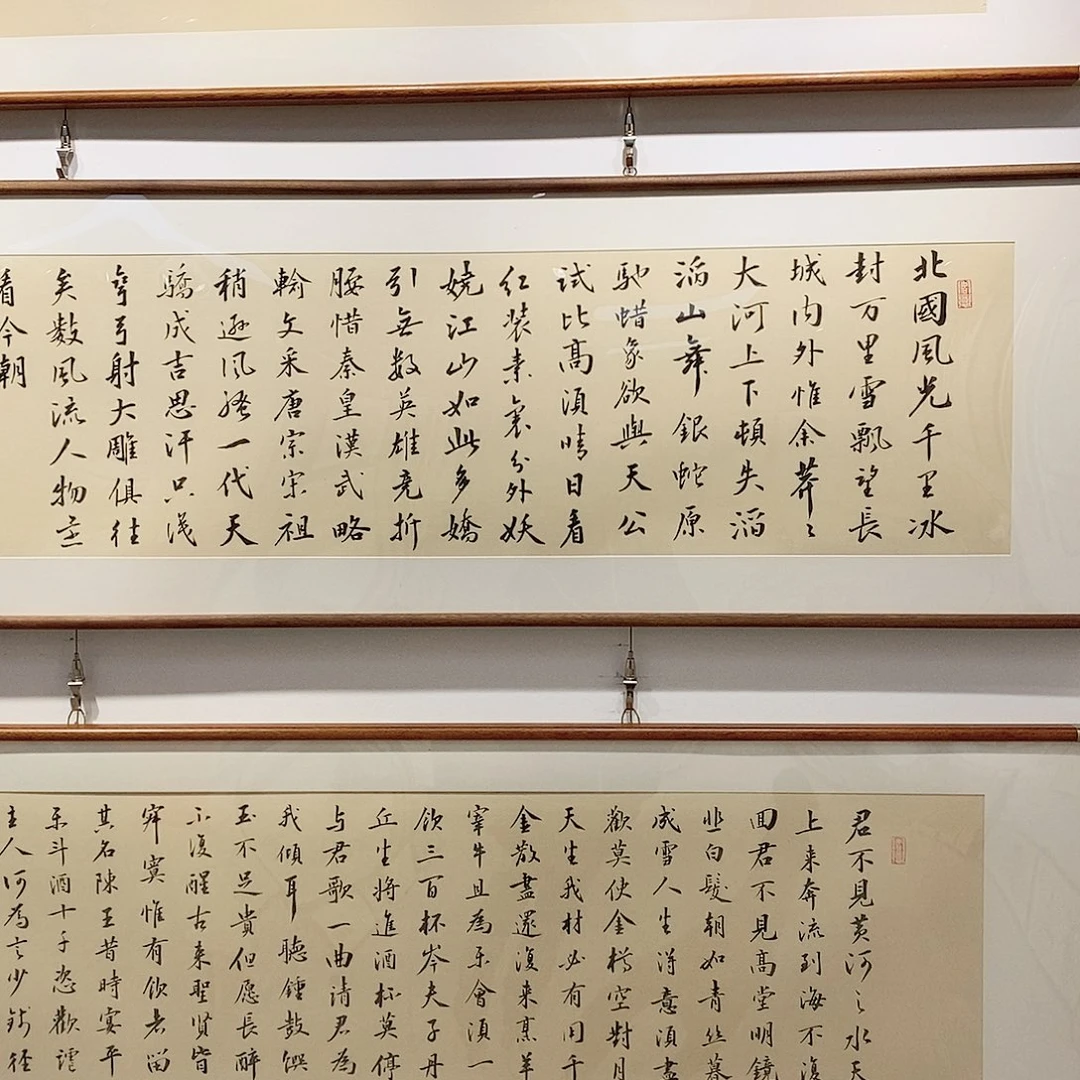 北國風光千里冰
封万里雪飄望長
城内外惟余莽〻
大河上下頓失滔
滔山舞銀蛇原
馳蜡象欲與天公
試比高須晴日看
红装素裹分外妖
娆江山如此多嬌
引無数英雄竞折
腰惜秦皇漢武略
輸文采唐宗宋祖
稍逊风骚一代天
驕成吉思汗只识
弯弓射大雕俱往
矣数風流人物还
看今朝
君不見黄河之水天
上来奔流到海不復
回君不見高堂明鏡
悲白髮朝如青丝暮
成雪人生得意須盡
歡莫使金樽空對月
天生我材必有用千
金散盡還復来烹羊
宰牛且為乐會須一
饮三百杯岑夫子丹
丘生將進酒杯莫停
与君歌一曲請君為
我傾耳聽鍾鼓馔
玉不足貴但愿長醉
不復醒古来聖贤皆
寂寞惟有饮者留
其名陳王昔時宴平
乐斗酒十千恣歡谑
主人何為言少钱徑